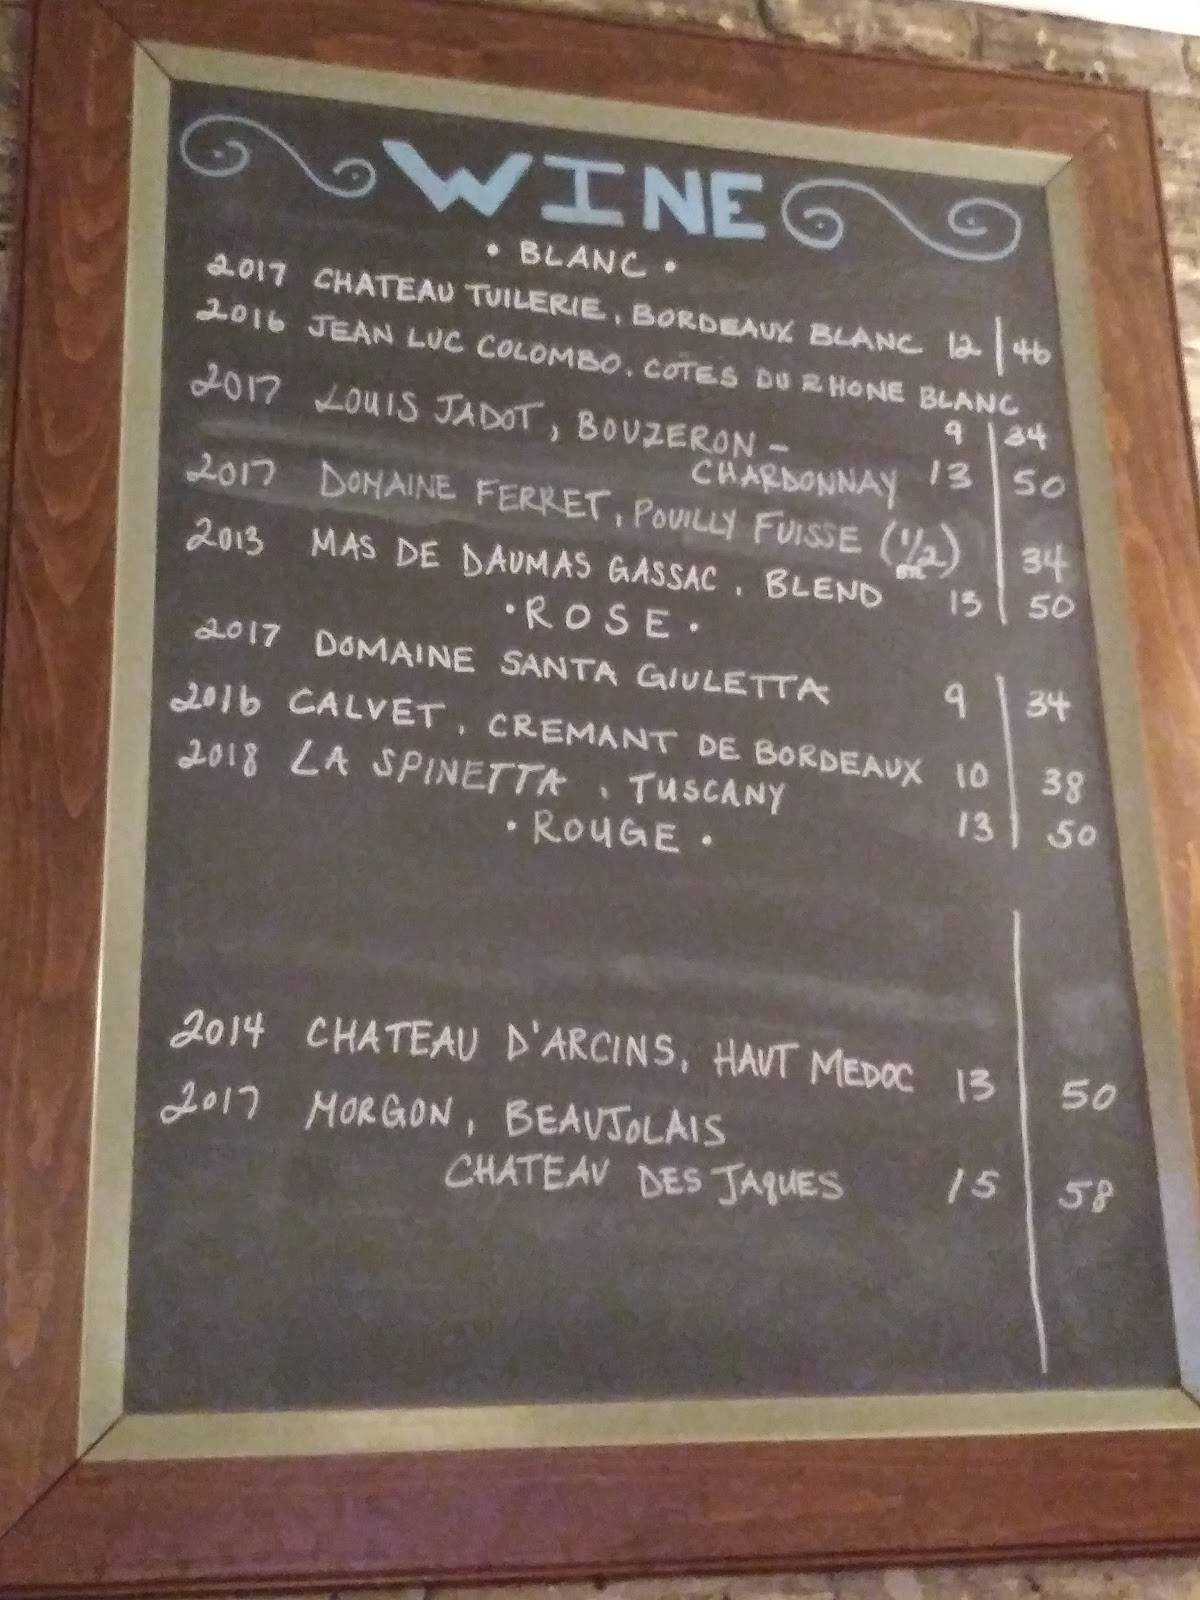 WINE
• BLANC •
2017 CHATEAU TUILERIE, BORDEAUX BLANC 12 | 46
2016 JEAN LUC COLOMBO. COTES DU RHONE BLANC
9 | 34
2017 LOUIS JADOT, BOUZERON -
CHARDONNAY 13 | 50
2017 DOMAINE FERRET, POUILLY FUISSE (1/2) | 34
2013 MAS DE DAUMAS GASSAC, BLEND 13 | 50
• ROSE •
2017 DOMAINE SANTA GIULETTA 9 | 34
2016 CALVET, CREMANT DE BORDEAUX 10 | 38
2018 LA SPINETTA, TUSCANY 13 | 50
• ROUGE •
2014 CHATEAU D'ARCINS, HAUT MEDOC 13 | 50
2017 MORGON, BEAUJOLAIS
CHATEAU DES JAQUES 15 | 58